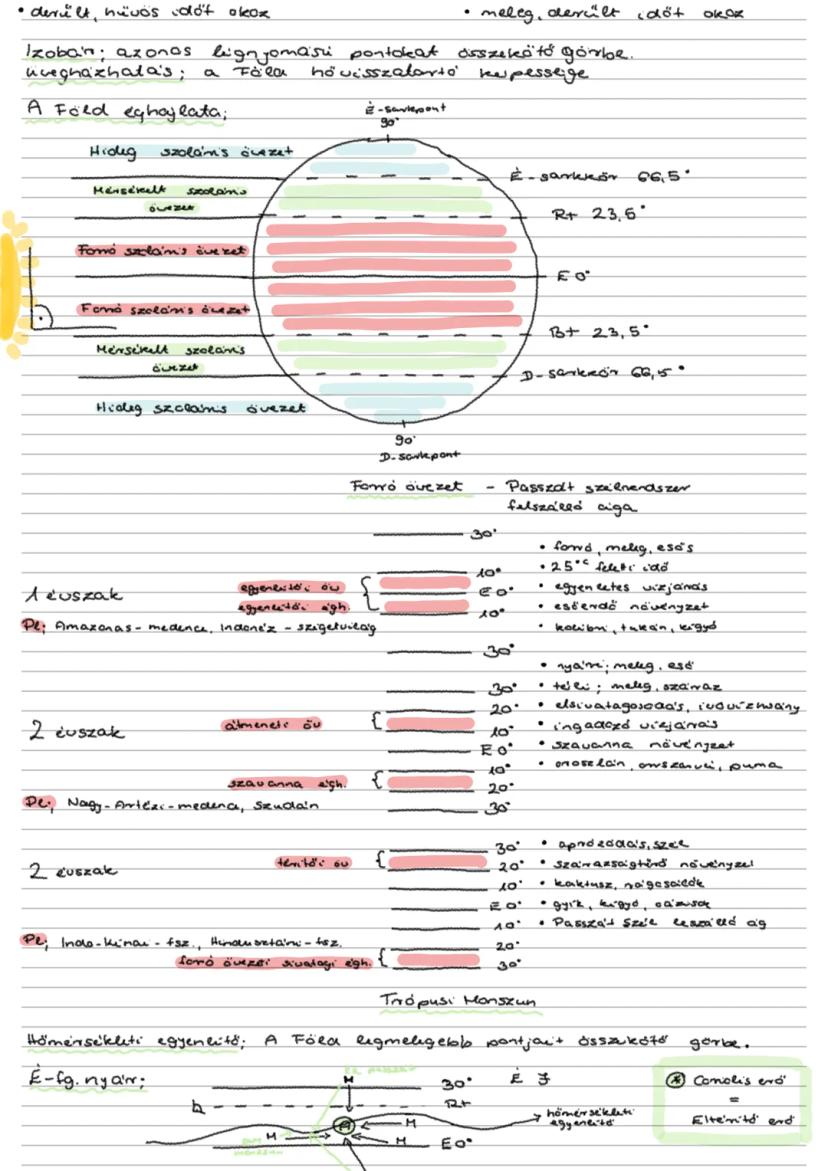 • derült, hűvös időt okoz
• meleg, derült időt okoz
Izobár; azonos légnyomású pontokat összekötő görbe.
üvegházhatás; a Föld hővisszatartó képessége
A Föld éghajlata;
É-sarkpont
90°
Hideg szoláris övezet
É-sarkkör 66,5°
Mérsékelt szoláris
övezet
Rt 23,5°
Forró szoláris övezet
E 0°
Forró szoláris övezet
Bt 23,5°
Mérsékelt szoláris
övezet
D-sarkkör 66,5°
Hideg szoláris övezet
90°
D-sarkpont
Forró övezet - Passzát szélrendszer
felszálló ága
30°
• forró, meleg, esős
10°
• 25°C feletti idő
1 évszak
egyenlítői öv
E 0°
• egyenletes vízjárás
egyenlítői égh.
10°
• esőerdő növényzet
Pl; Amazonas-medence, Indonéz-szigetvilág
• kolibri, tukán, kígyó
30°
• nyári; meleg, eső
30°
• téli; meleg, száraz
20°
• elsivatagosodás, ivóvízhiány
2 évszak
átmeneti öv
10°
• ingadozó vízjárás
E 0°
• szavanna növényzet
10°
• oroszlán, orrszarvú, puma
szavanna égh.
20°
Pl; Nagy-Artézi-medence, Szudán
30°
30°
• aprózódás, szél
2 évszak
térítői öv
20°
• szárazságtűrő növényzet
10°
• kaktusz, rágcsálók
E 0°
• gyík, kígyó, oázisok
10°
• Passzát szél leszálló ág
Pl; Indo-kínai-fsz., Hindusztáni-fsz.
20°
forró övezeti sivatagi égh.
30°
Trópusi Monszun
Hőmérsékleti egyenlítő; A Föld legmelegebb pontjait összekötő görbe.
É-fg. nyár;
M
30°
É
Coriolis erő
Rt
=
hőmérsékleti
egyenlítő
A
M
Eltérítő erő
M
M
E 0°